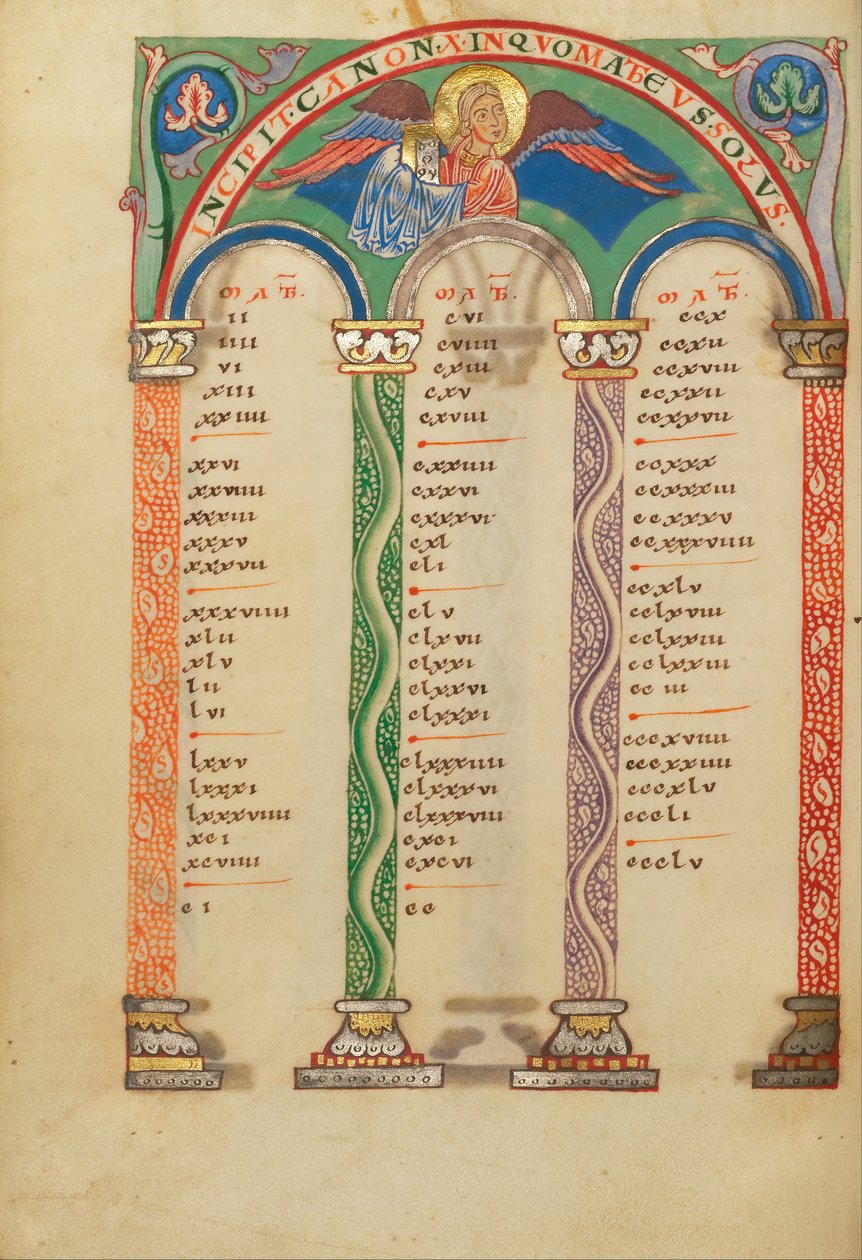 INCIPIT·CANON·X·IN QVO MATHEVS·SOLVS·
MATH.
ii
iiii
vi
xiii
xxiiii
xxvi
xxviiii
xxxiii
xxxv
xxxvii
xxxviiii
xlii
xlv
lii
lvi
lxxv
lxxxi
lxxxviiii
xci
xcviiii
ci
MATH.
cvi
cviiii
cxiii
cxv
cxviii
cxxiiii
cxxvi
cxxxvi
cxl
cli
clv
clxvii
clxxi
clxxvi
clxxxi
clxxxiiii
clxxxvi
clxxxviii
cxci
cxcvi
cc
MATH.
ccx
ccxii
ccxviii
ccxxii
ccxxvii
ccxxx
ccxxxiii
ccxxxv
ccxxxviiii
ccxlv
cclxviii
cclxxiii
cclxxiii
cc iii
cccxviiii
cccxxiiii
cccxlv
cccli
ccclv